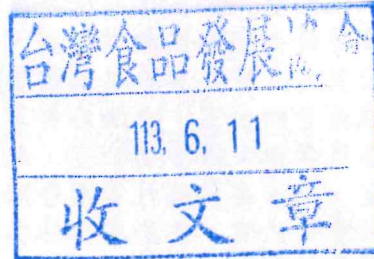 台灣食品發展協會
113. 6. 11
收文章